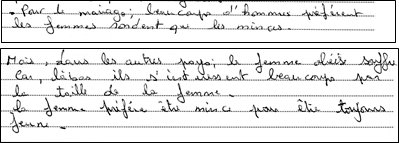 . Pour le mariage; beaucoup d'hommes préfèrent
les femmes que les minces.
Mais, dans les autres pays; la femme obèse souffre
car, là bas ils s' beaucoup par
la taille de la femme.
la femme préfère être mince pour être toujours
jeune.